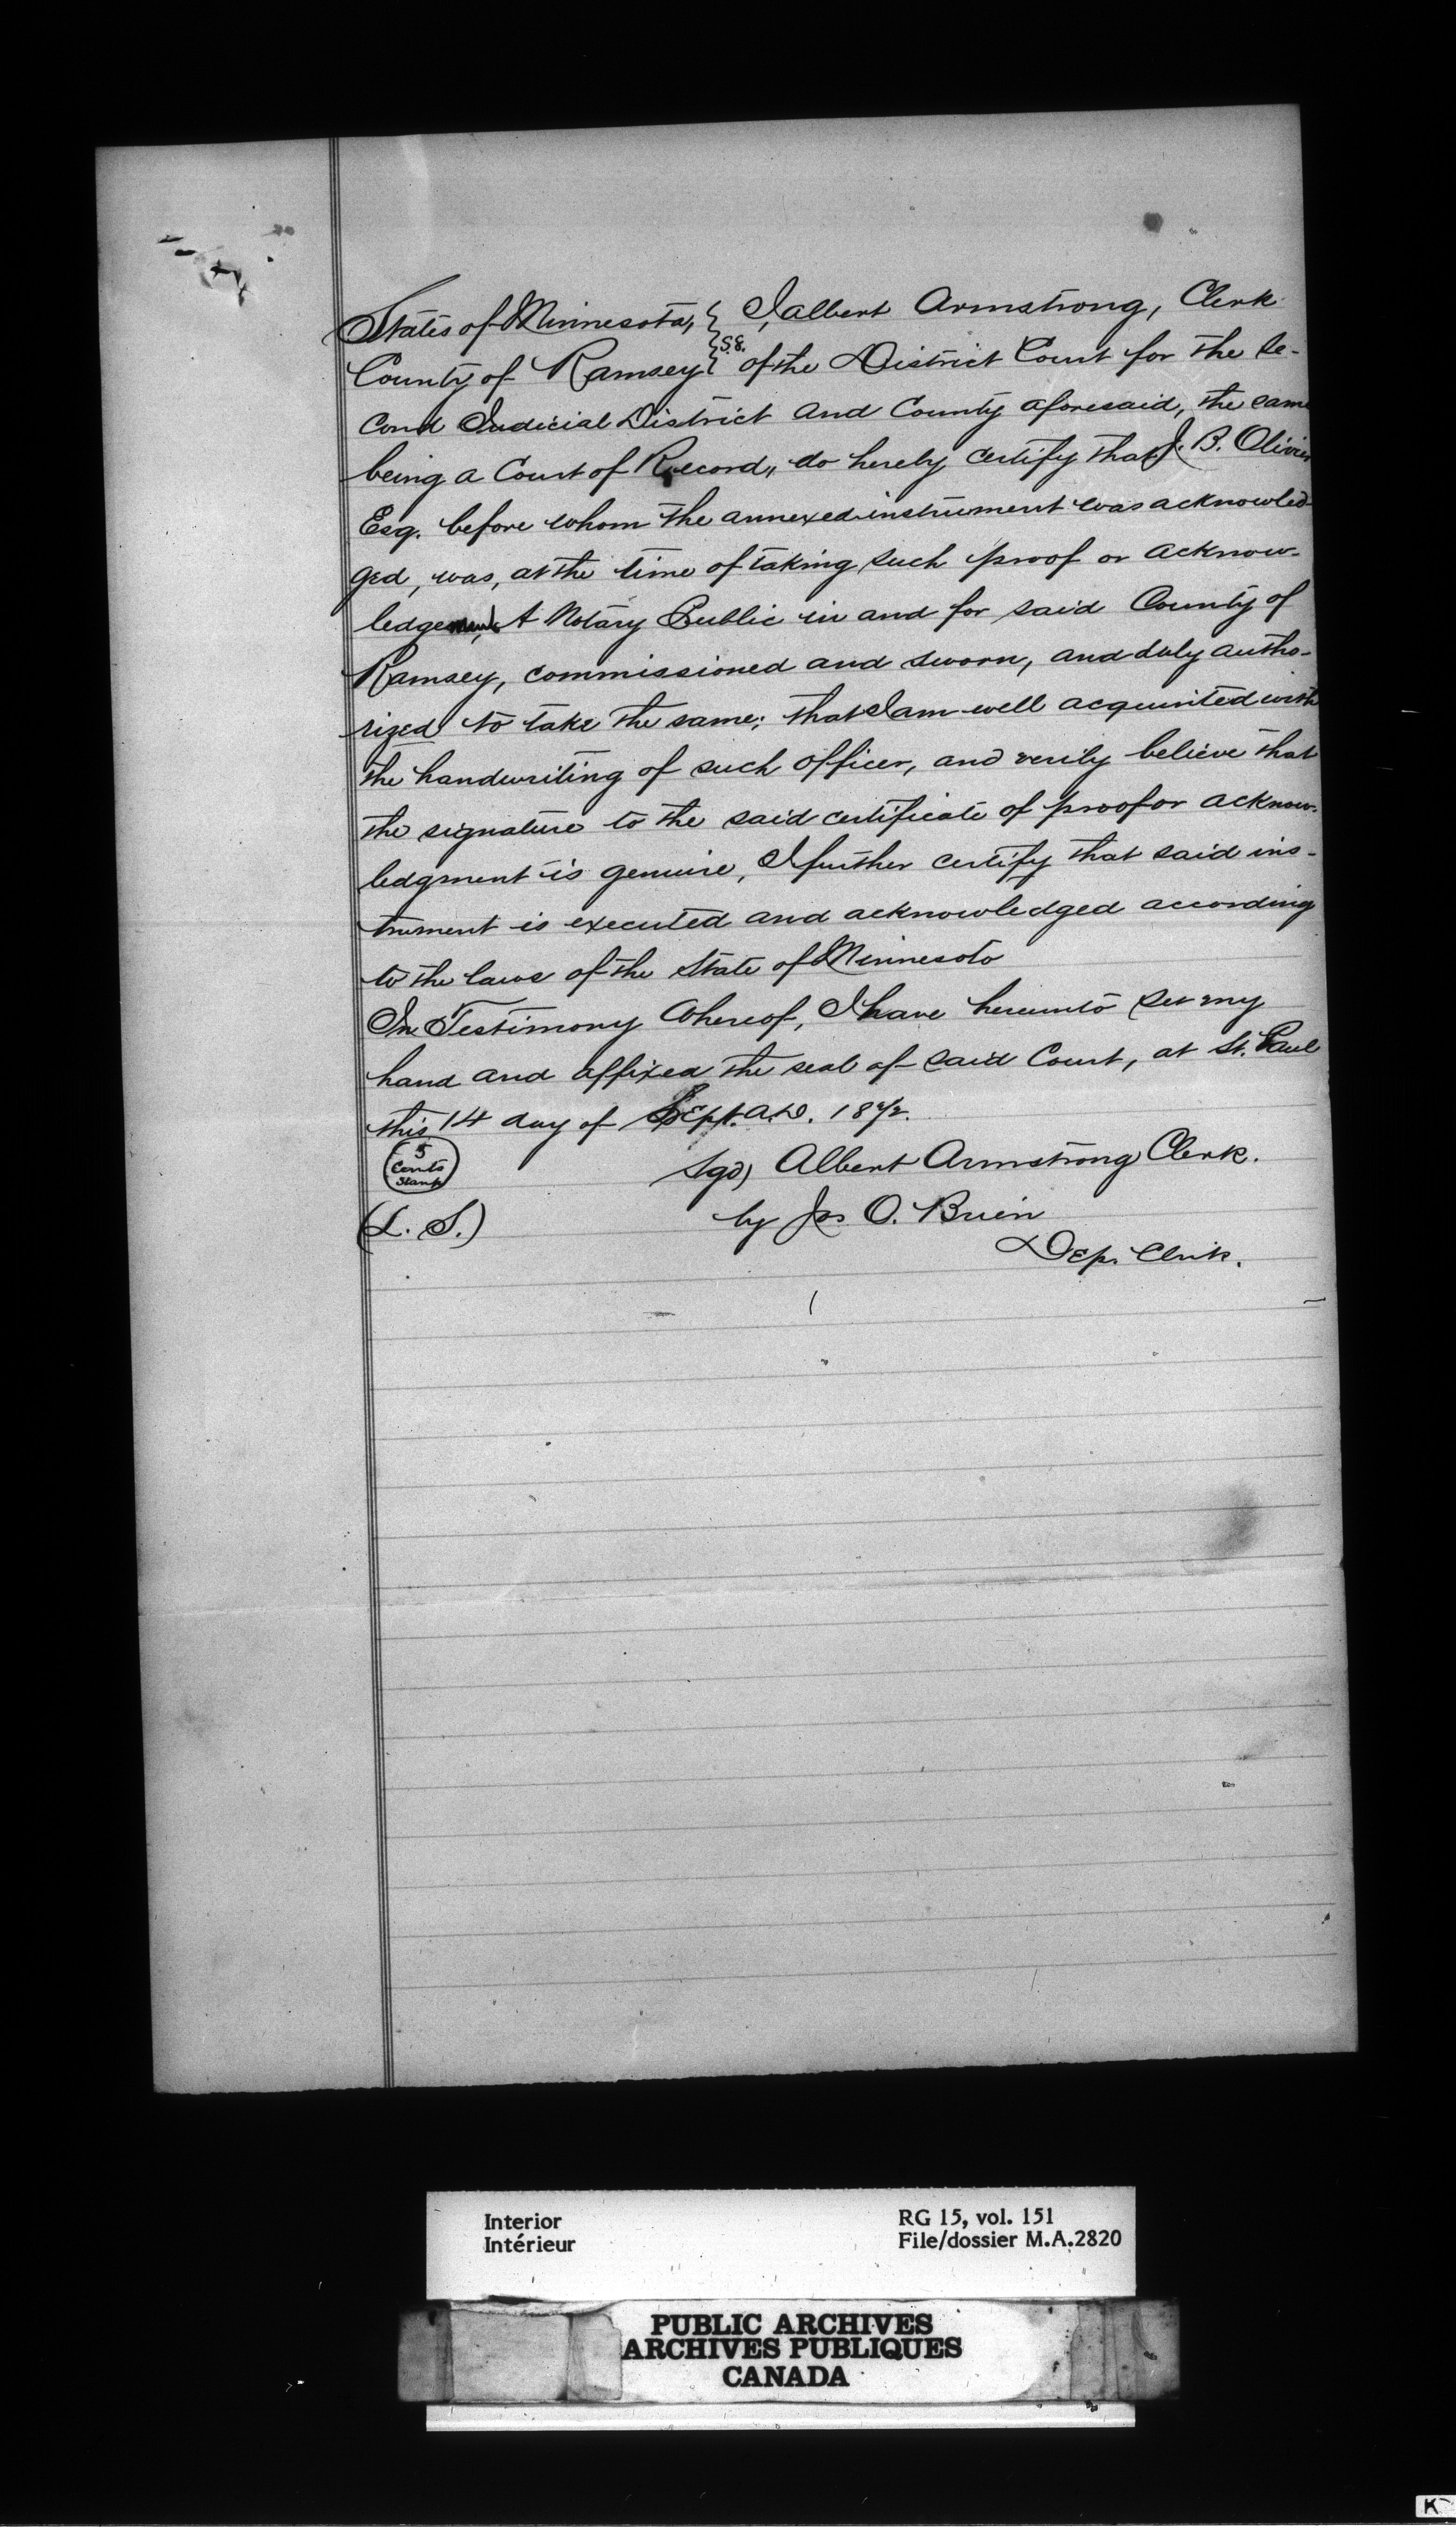 States of Minnesota, } I, albert Armstrong, Clerk
County of Ramsey } S.S. of the District Court for the Se-
cond Judicial District and County aforesaid, the same
being a Court of Record, do hereby certify that J. B. Olivier
Esq. before whom the annexed instrument was acknowled-
ged, was, at the time of taking such proof or acknow-
ledgement, A Notary Public in and for said County of
Ramsey, commissioned and sworn, and duly autho-
rized to take the same; that I am well acquinted with
the handwriting of such officer, and verily believe that
the signature to the said certificate of proof or acknow-
ledgment is genuine, I further certify that said ins-
trument is executed and acknowledged according
to the laws of the State of Minnesota
In Testimony Whereof, I have hereunto set my
hand and affixed the seal of said Court, at St. Paul
this 14 day of Sept. A.D. 1872.
5
Cents
Stamp
Sgd) Albert Armstrong Clerk.
(L. S.) by Jas O. Brien
Dep. Clerk.
Interior
Intérieur
RG 15, vol. 151
File/dossier M.A.2820
PUBLIC ARCHIVES
ARCHIVES PUBLIQUES
CANADA
K